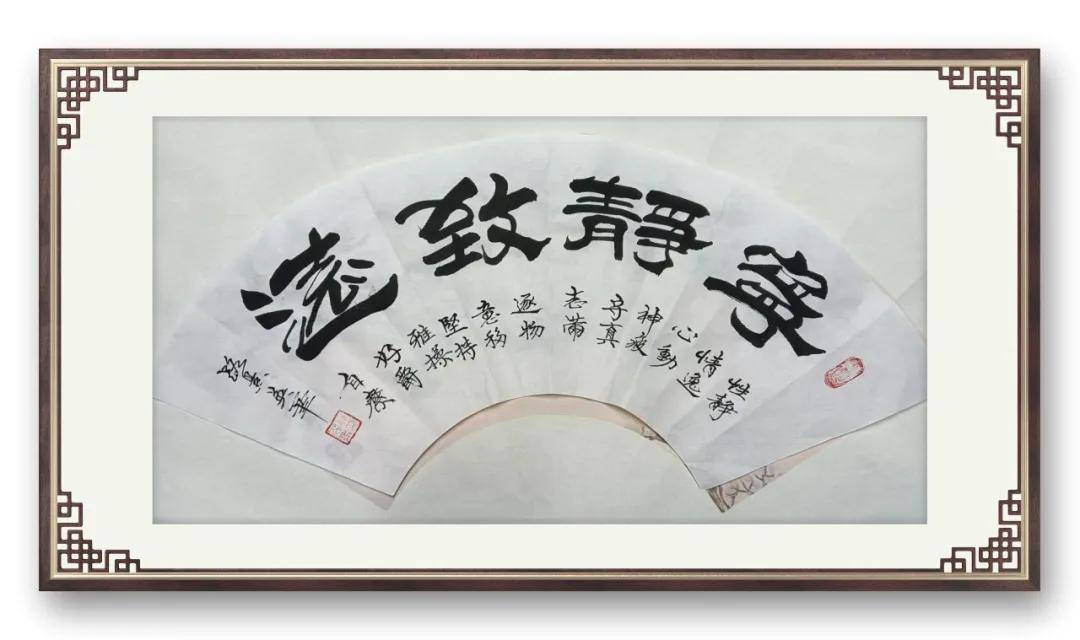 寧靜致遠
性静
情逸
心動
神疲
守真
志滿
逐物
意移
堅持
雅操
好爵
自縻